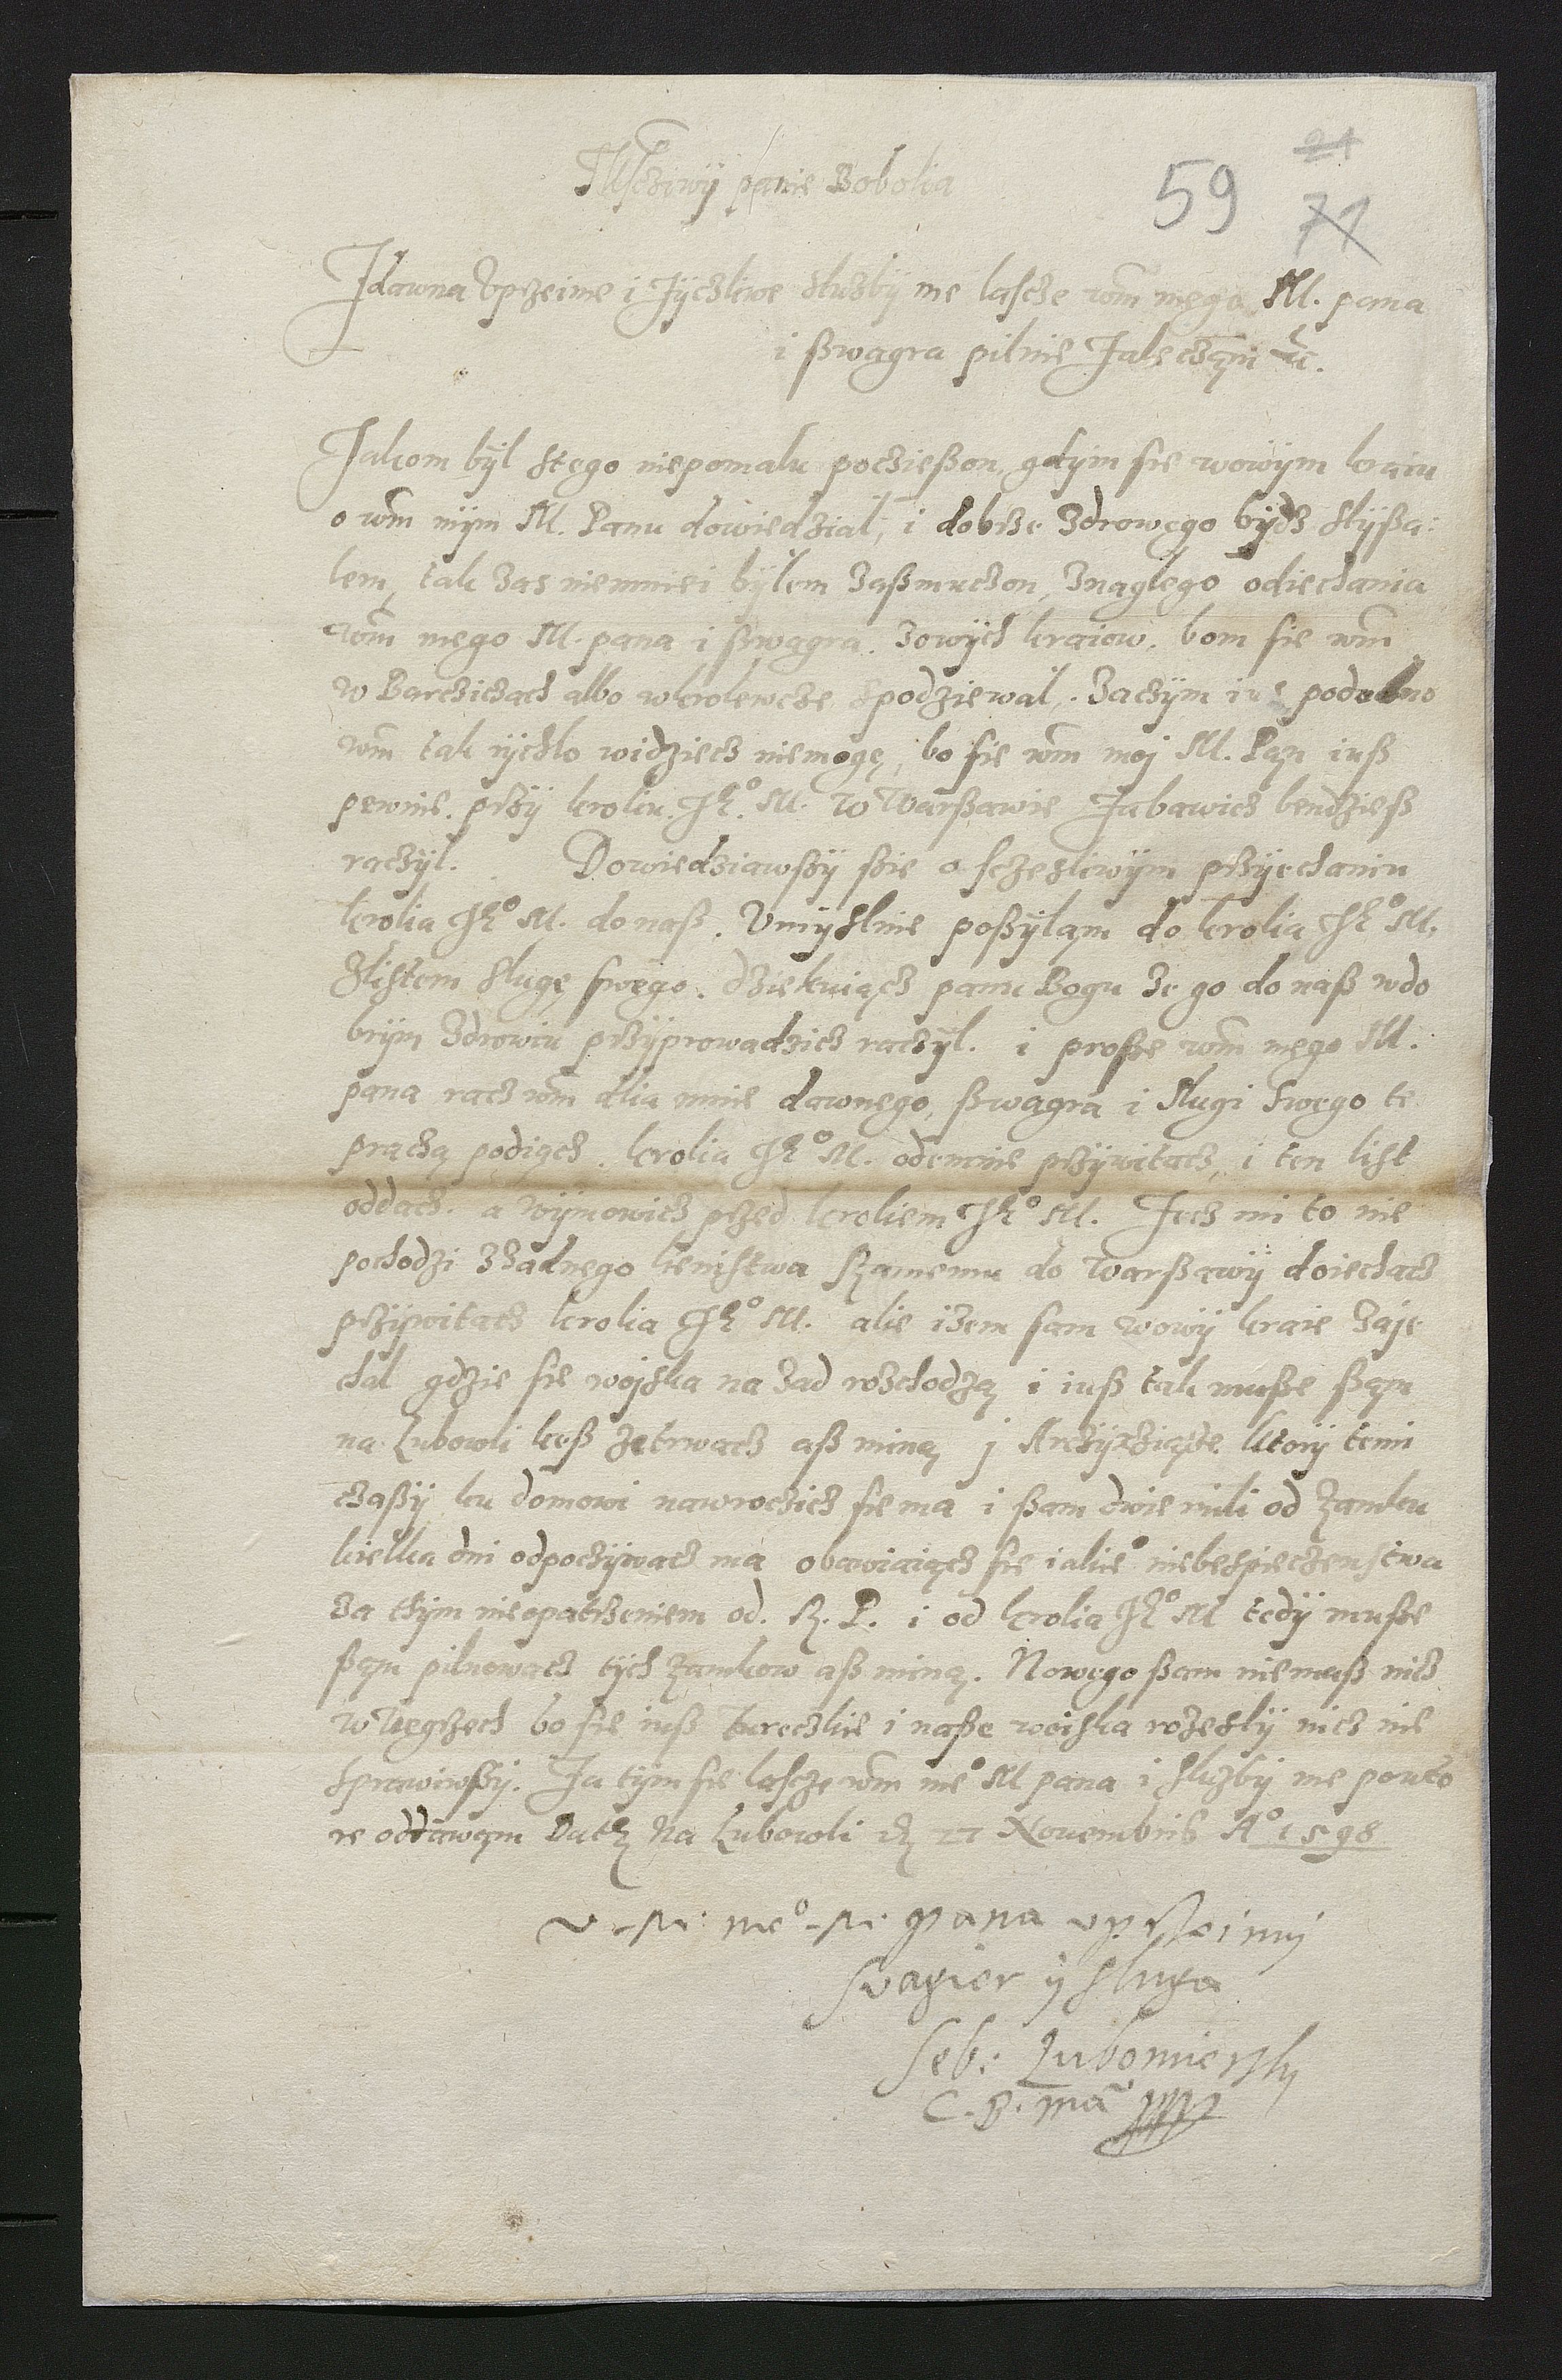 Moscziwÿ panie Bobolia
59
21
71
Zdawna Vprzeime i Zÿczliwe sluzbÿ me lascze wm mego M. pana
i ßwagra pilnie Zaleczam etc.
Jakom bÿl stego niepomalu pocziessßon, gdÿm sie wowÿm kraiu
o wm mÿm M. Panu dowiedzial, i dobrze zdrowego bÿdz slÿßa:
lem, tak zas niemniei bÿlem zaßmuczon, znaglego odiechania
wm mego M. pana i ßwagra. zowÿch kraiow. bom sie wm
w Barczicach albo wkrolewcze spodziewal. Zaczÿm podobno
wm tak rÿchlo widziecz niemogę, bo sie wm moj M. Pan iuß
pewnie. przÿ kroliu. JK.º M. w Warßawie Zabawicz bendzieß
raczÿl. Dowiedziawßÿ ßie o sczesliwÿm przÿiechaniu
krolia JKº M. do naß. Vmÿslnie poßÿlam do krolia JKº M.
Zlistem slugę swego. dziekuiącz panu Bogu ze go do naß wdo
brÿm zdrowiu przÿprowadzicz raczÿl. i proße wm mego M.
pana racz wm dlia mnie dawnego, ßwagra i slugi swego te
pracza podiącz. krolia JKº M. odemnie przÿwitacz, i ten list
oddacz. a wÿmowicz przed kroliem JKº M. Zecz mi to nie
pochodzi zzadnego lenistwa Szamemu do Warßawÿ doiechacz
przÿwitacz krolia JKº M. alie izem sam wowÿ kraie zaje
chal gdzie sie wojska na zad rozchodzą i iuß tak muße ßam
na Lubowli keß zetrwacz aß miną j Arczÿxziąże ktorÿ temi
czaßÿ ku domowi nawroczicz sie ma i ßam dwie mili od Zamku
kielka dni odpoczÿwacz ma obawiaiącz sie iakieº niebespieczenstwa
za tkÿm nieopatrzeniem od. R. P. i od krolia JKº M tedÿ muße
ßam pilnowacz tÿch zamkow aß miną. Nowego ßam niemaß nicz
w Vegrzech bo sie iuß Tureczkie i naße woiska rozeslÿ nicz nie
sprawiwßÿ. Za tÿm sie lascze wm meº M pana i sluzbÿ me powto
re oddawam Datt Na Lubowli Novembris Aº 1598
V. M. meº M. pana vprzeimÿ
Svagier ÿ sluga
Seb: Lubomierskÿ
C. B. mã pp